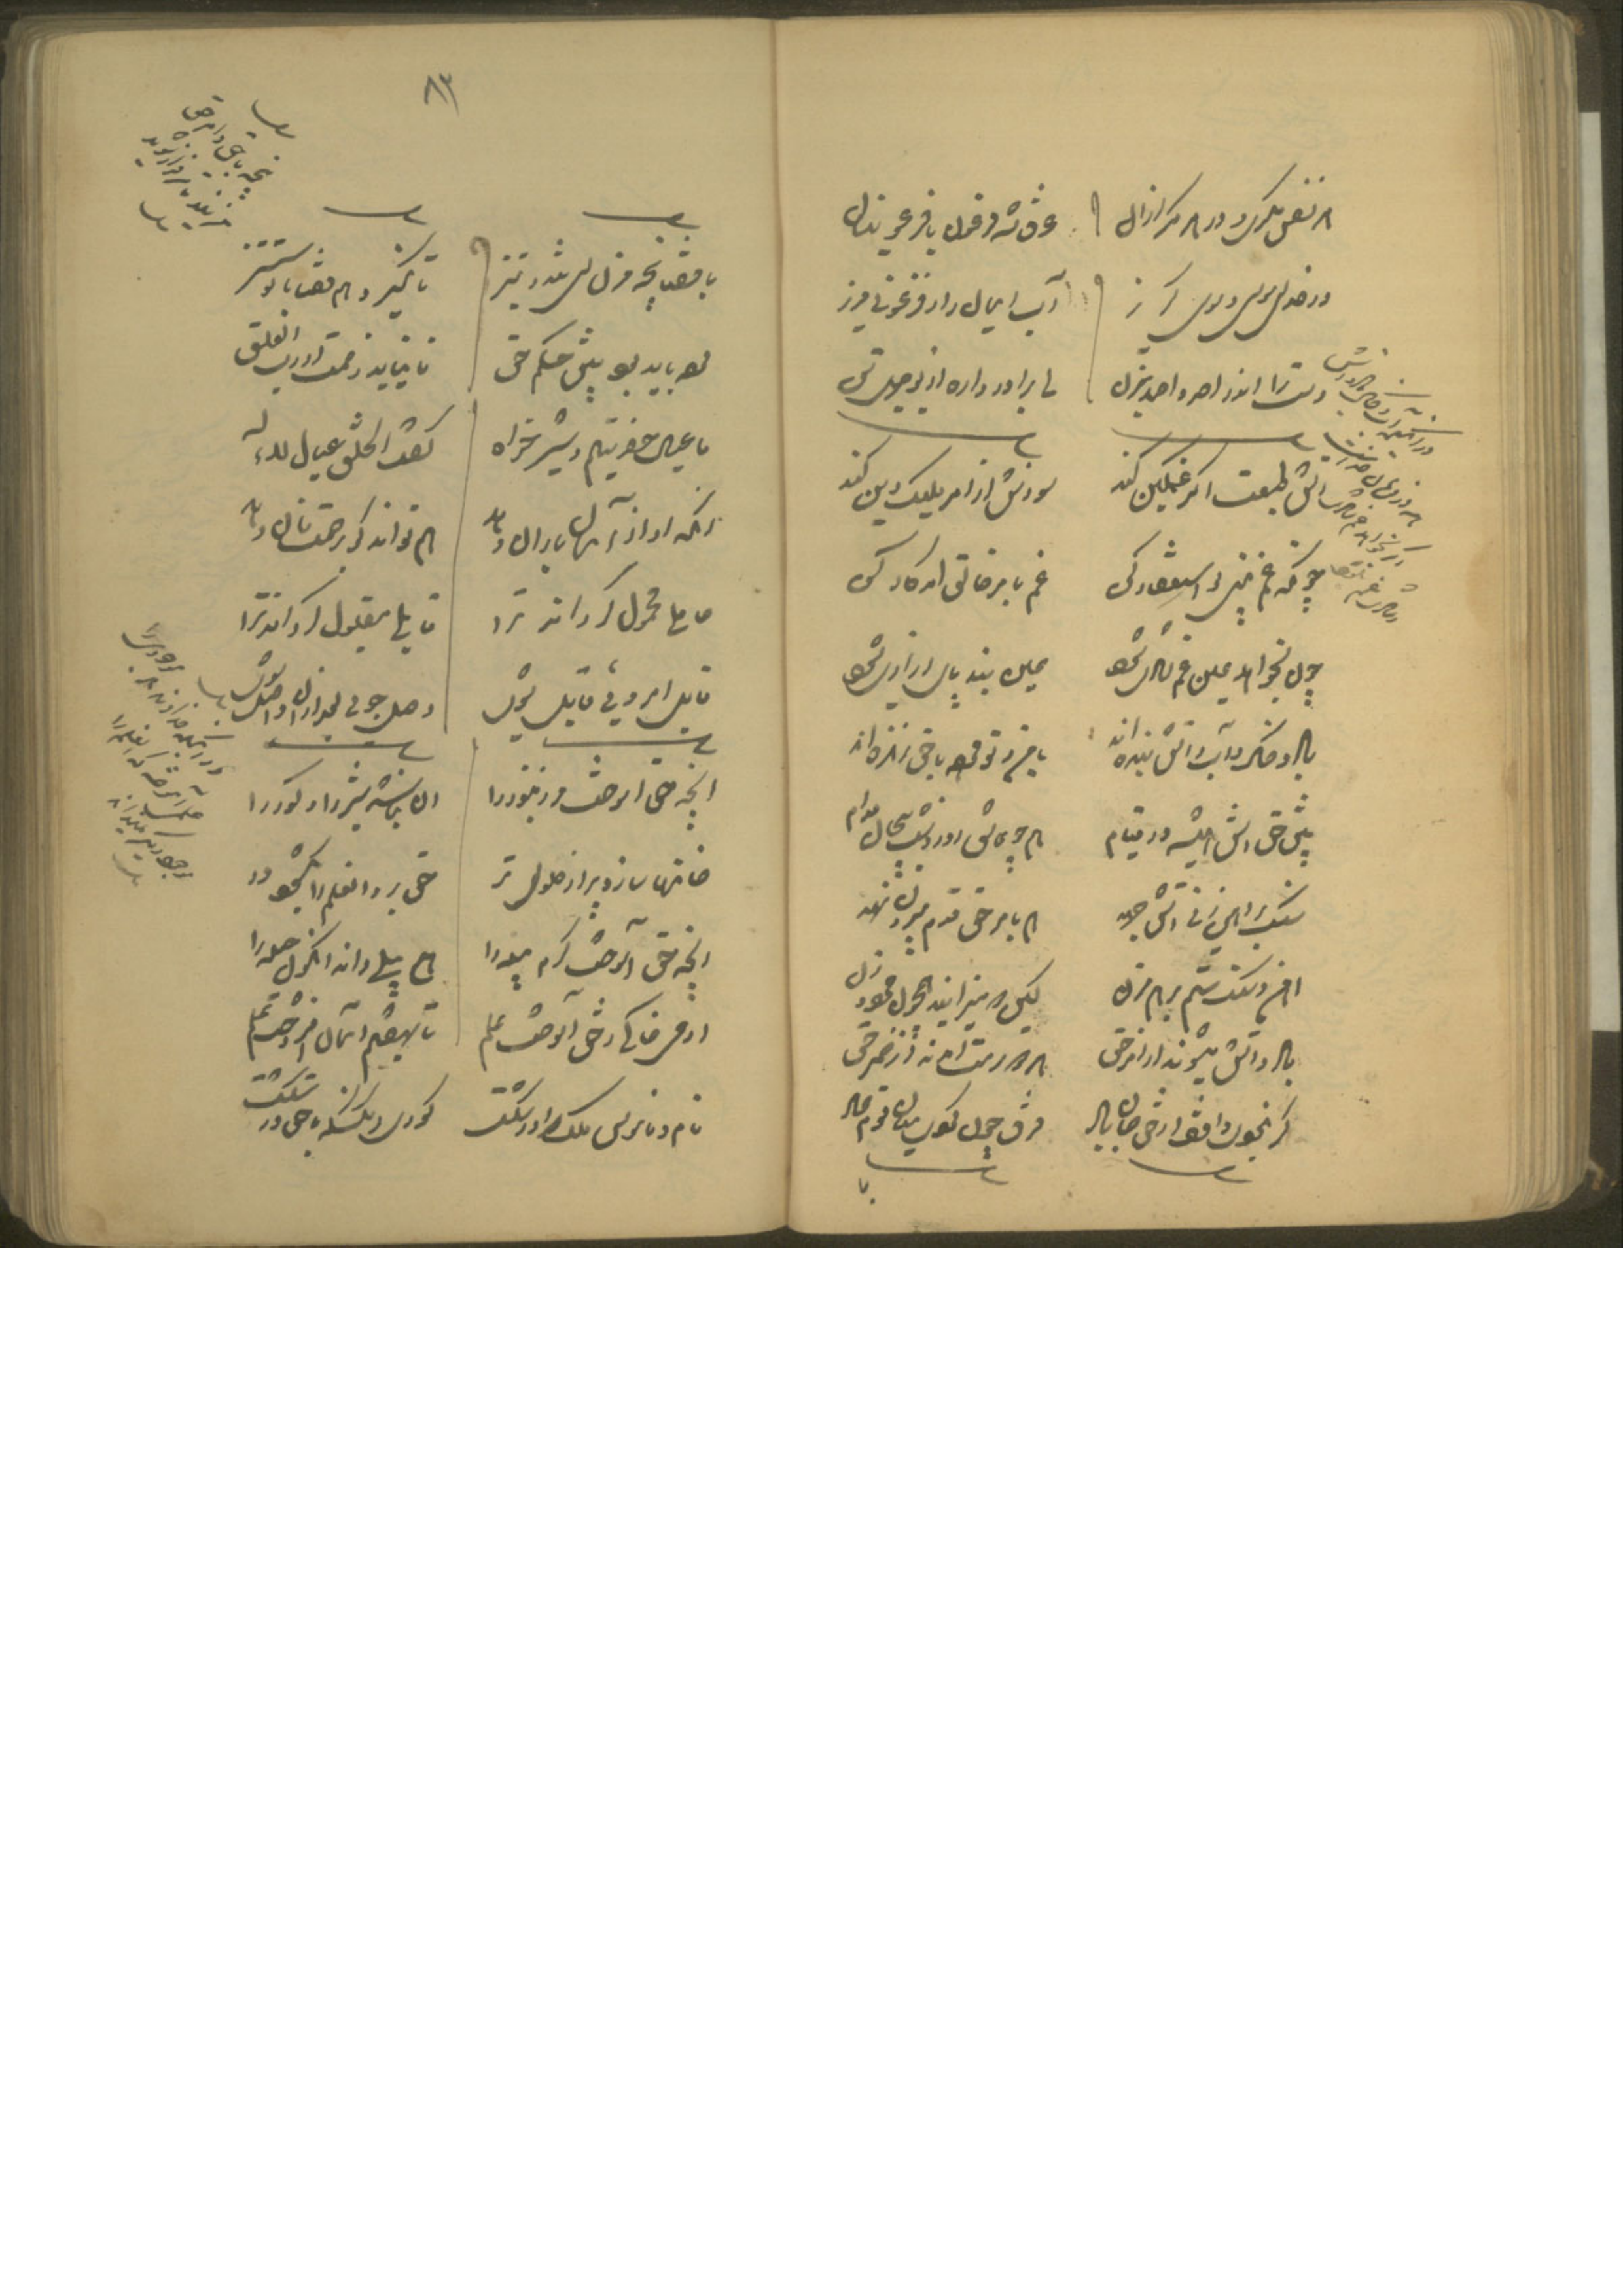 هر نفس مکری و در هر مکر ازان غرقه شد فرعون با فرعونیان
در خدای موسی و موسی گریز آب ایمان را ز فرعونی مریز
دست را اندر احد و احمد بزن ای برادر واره از بوجهل تن
آتش طبعت اگر غمگین کند سوزش از امر ملیک دین کند
چونکه غم بینی تو استغفار کن غم بامر خالق آمد کار کن
چون بخواهد عین غم شادی شود عین بند پای آزادی شود
باد و خاک و آب و آتش بنده اند با من و تو مرده با حق زنده اند
پیش حق آتش همیشه در قیام همچو عاشق روز و شب پیچان مدام
سنگ بر آهن زنی آتش جهد هم بامر حق قدم بیرون نهد
آهن و سنگ ستم بر هم مزن کین دو میزایند همچون مرد و زن
باد و آتش میشوند از امر حق هر دو سرمست آمدند از خمر حق
گر نبودی واقف از حق جان باد فرق چون کردی میان قوم عاد
۸۳
با قضا پنجه مزن ای تند و تیز تا نگیرد هم قضا با تو ستیز
مرده باید بود پیش حکم حق تا نیاید زخمت از رب الفلق
ما عیال حضرتیم و شیر خواه گفت الخلق عیال للاله
آنکه او از آسمان باران دهد هم تواند کو برحمت نان دهد
حاملی محمول گرداند ترا قابلی مقبول گرداند ترا
قابل امر ویی قابل شوی وصل جویی بعد ازان واصل شوی
آنچه حق آموخت مر زنبور را آن نباشد شیر را و گور را
خانها سازد پر از حلوای تر حق برو آن علم را بگشود در
آنچه حق آموخت کرم پیله را هیچ پیلی داند آنگون حیله را
آدم خاکی ز حق آموخت علم تا بهفتم آسمان افروخت علم
نام و ناموس ملک را در شکست کوری آنکس که با حق در شکست